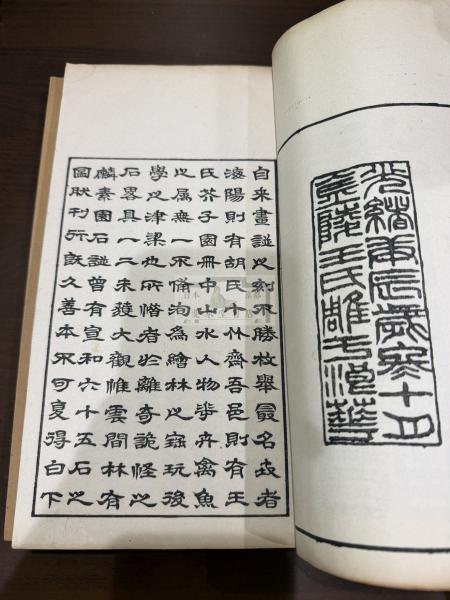 光緒辰歲寒十
金陵王氏雕
自來畫譜之刻不勝枚舉最名者
海陽則有胡氏十竹齋吾邑則有王
氏芥子園冊中山水人物華卉禽魚
之屬無一不備洵為繪林之寶玩後
學之津梁也所惜者於離奇詭怪之
石畧具一二未大觀惟雲間林有
麟素園石譜曾有宣和六十五石之
圖肰刊行既久善本不可复得白下